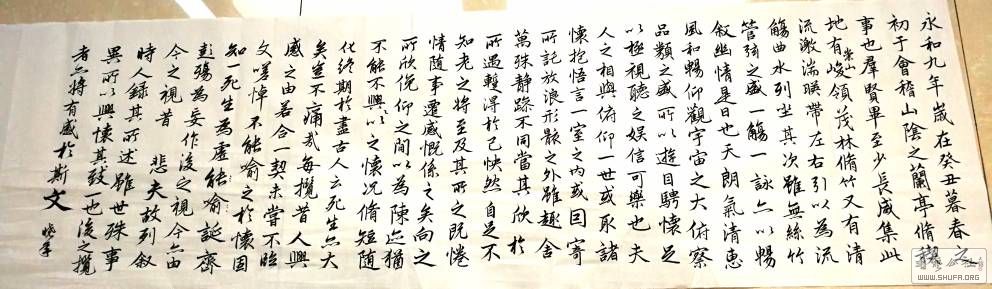 永和九年歲在癸丑暮春之
初于會稽山陰之蘭亭脩禊
事也羣賢畢至少長咸集此
地有崇山峻領茂林脩竹又有清
流激湍暎帶左右引以為流
觴曲水列坐其次雖無絲竹
管弦之盛一觴一詠亦以暢
叙幽情是日也天朗氣清惠
風和暢仰觀宇宙之大俯察
品類之盛所以遊目騁懷足
以極視聽之娛信可樂也夫
人之相與俯仰一世或取諸
懷抱悟言一室之內或因寄
所託放浪形骸之外雖趣舍
萬殊静躁不同當其欣於
所遇暫得於己怏然自足不
知老之將至及其所之既惓
情隨事遷感慨係之矣向之
所欣俛仰之間以為陳迹猶
不能不以之興懷況脩短隨
化終期於盡古人云死生亦大
矣豈不痛哉每攬昔人興
感之由若合一契未嘗不臨
文嗟悼不能喻之於懷固
知一死生為虛誕齊
彭殤為妄作後之視今亦由
今之視昔 悲夫故列叙
時人錄其所述雖世殊事
異所以興懷其致一也後之攬
者亦將有感於斯文
WWW.SHUFA.ORG